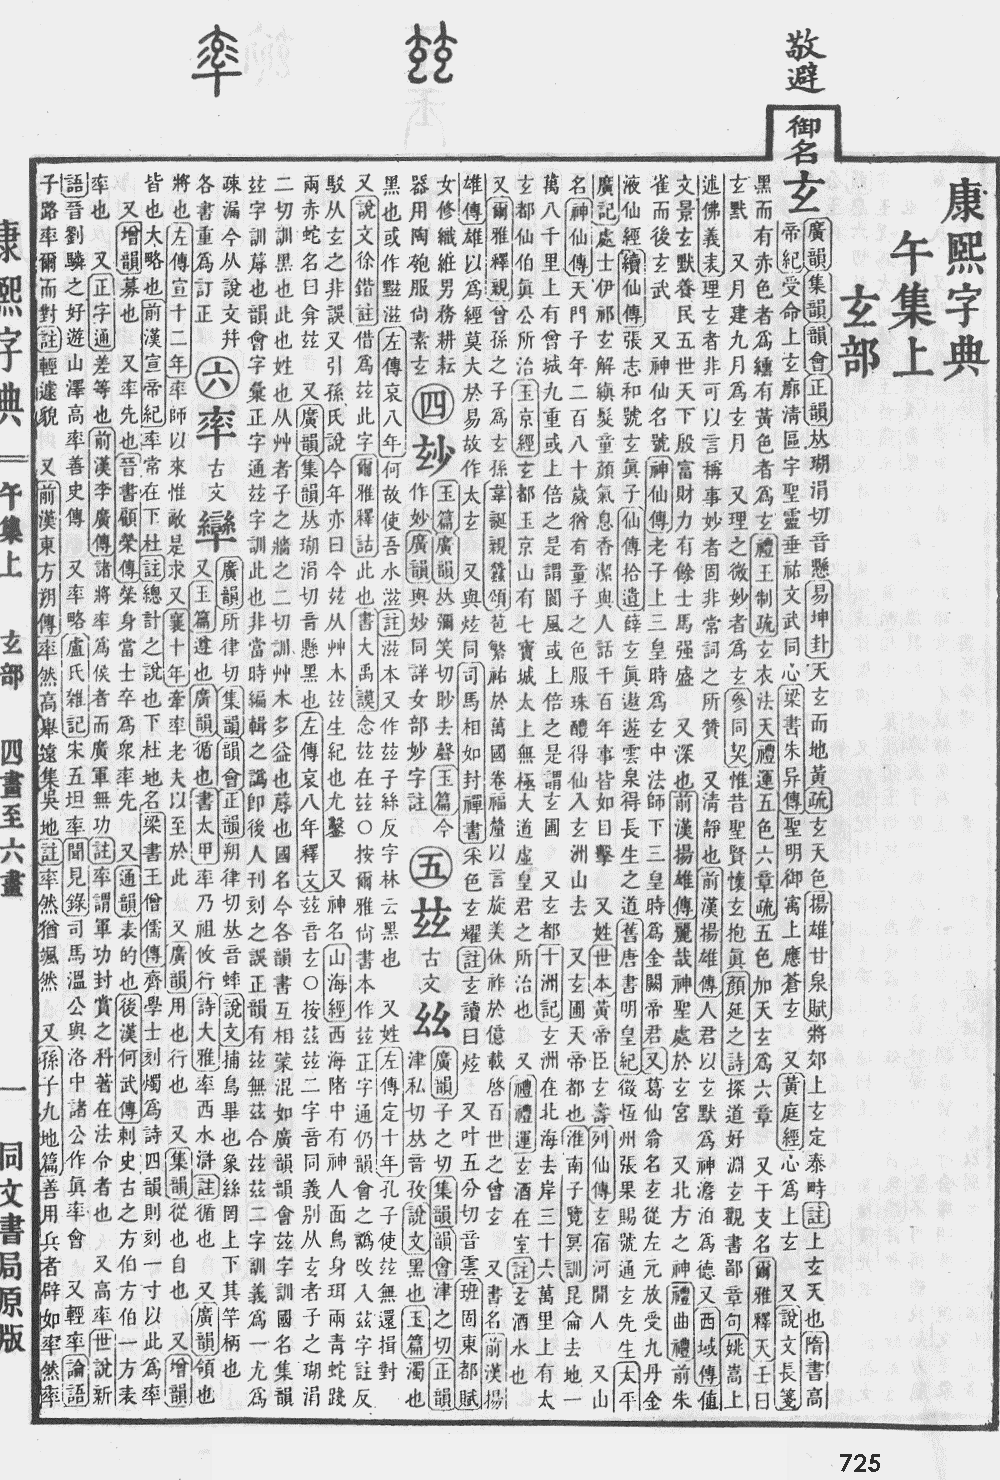 敬避
御名
康熙字典
午集上
玄部
玄
廣韻集韻韻會正韻𠀤瑚涓切音懸易坤卦天玄而地黃疏玄天色揚雄甘泉賦將郊上玄定泰畤註上玄天也隋書高
帝紀受命上玄廓清區宇聖靈垂祐文武同心梁書朱异傳聖明御寓上應蒼玄 又黃庭經心爲上玄 又說文長箋
黑而有赤色者爲纁有黃色者爲玄禮王制疏玄衣法天禮運五色六章疏五色加天玄爲六章 又干支名爾雅釋天壬曰
玄黓 又月建九月爲玄月 又理之微妙者爲玄參同契惟昔聖賢懷玄抱眞顏延之詩探道好淵玄觀書鄙章句姚嵩上
述佛義表理玄者非可以言稱事妙者固非常詞之所贊 又淸靜也前漢揚雄傳人君以玄默爲神澹泊爲德又西域傳値
文景玄默養民五世天下殷富財力有餘士馬强盛 又深也前漢揚雄傳麗哉神聖處於玄宮 又北方之神禮曲禮前朱
雀而後玄武 又神仙名號神仙傳老子上三皇時爲玄中法師下三皇時爲金闕帝君又葛仙翁名玄從左元放受九丹金
液仙經續仙傳張志和號玄眞子仙傳拾遺薛玄眞遨遊雲泉得長生之道舊唐書明皇紀徵恆州張果賜號通玄先生太平
廣記處士伊祁玄解縝髮童顏氣息香潔與人話千百年事皆如目擊 又姓世本黃帝臣玄壽列仙傳玄宿河閒人 又山
名神仙傳天門子年二百八十歲猶有童子之色服珠醴得仙入玄洲山去 又玄圃天帝都也淮南子覽冥訓昆侖去地一
萬八千里上有曾城九重或上倍之是謂閬風或上倍之是謂玄圃 又玄都十洲記玄洲在北海去岸三十六萬里上有太
玄都仙伯眞公所治玉京經玄都玉京山有七寶城太上無極大道虛皇君之所治也 又禮禮運玄酒在室註玄酒水也
又爾雅釋親曾孫之子爲玄孫韋誕親蠶頌苞繁祐於萬國卷福釐以言旋美休祚於億載啓百世之曾玄 又書名前漢揚
雄傳雄以爲經莫大於易故作太玄 又與炫同司馬相如封禪書采色玄耀註玄讀曰炫 又叶五分切音雲班固東都賦
女修織紝男務耕耘器用陶匏服尚素玄
四
玅
玉篇廣韻𠀤彌笑切眇去聲玉篇今作妙廣韻與妙同詳女部妙字註
五
玆
古文
𢆶
廣韻子之切集韻韻會津之切正韻津私切𠀤音孜說文黑也玉篇濁也
黑也或作黰滋左傳哀八年何故使吾水滋註滋本又作玆子絲反字林云黑也 又姓左傳定十年孔子使玆無還揖對
又說文徐鍇註借爲玆此字爾雅釋詁此也書大禹謨念玆在玆〇按爾雅尙書本作玆正字通仍韻會之譌攺入玆字註反
駁从玄之非誤又引孫氏說今年亦曰今玆从艸木玆生紀也尤鑿 又神名山海經西海陼中有神人面鳥身珥兩靑蛇踐
兩赤蛇名曰弇玆 又廣韻集韻𠀤瑚涓切音懸黑也左傳哀八年釋文玆音玄〇按玆玆二字音同義别从玄者子之瑚涓
二切訓黑也此也姓也从艸者子之牆之二切訓艸木多益也蓐也國名今各韻書互相蒙混如廣韻韻會玆字訓國名集韻
玆字訓蓐也韻會字彙正字通玆字訓此也非當時編輯之譌卽後人刊刻之誤正韻有玆無玆合玆玆二字訓義爲一尤爲
疎漏今从說文幷各書重爲訂正
六
率
古文
䢦
廣韻所律切集韻韻會正韻朔律切𠀤音蟀說文捕鳥畢也象絲罔上下其竿柄也
又玉篇遵也廣韻循也書太甲率乃祖攸行詩大雅率西水滸註循也 又廣韻領也
將也左傳宣十二年率師以來惟敵是求又襄十年牽率老夫以至於此 又廣韻用也行也 又集韻從也自也 又增韻
皆也大略也前漢宣帝紀率常在下杜註總計之說也下杜地名梁書王僧儒傳齊學士刻燭爲詩四韻則刻一寸以此爲率
又增韻募也 又率先也晉書顧榮傳榮身當士卒爲衆率先 又通韻表的也後漢何武傳刺史古之方伯方伯一方表
率也 又正字通差等也前漢李廣傳諸將率爲侯者而廣軍無功註率謂軍功封賞之科著在法令者也 又高率世說新
語晉劉驎之好遊山澤高率善史傳 又率略盧氏雜記宋五坦率聞見錄司馬溫公與洛中諸公作眞率會 又輕率論語
子路率爾而對註輕遽貌 又前漢東方朔傳率然高舉遠集吳地註率然猶颯然 又孫子九地篇善用兵者辟如率然率
康熙字典
午集上
玄部
四畫至六畫
一
同文書局原版
725